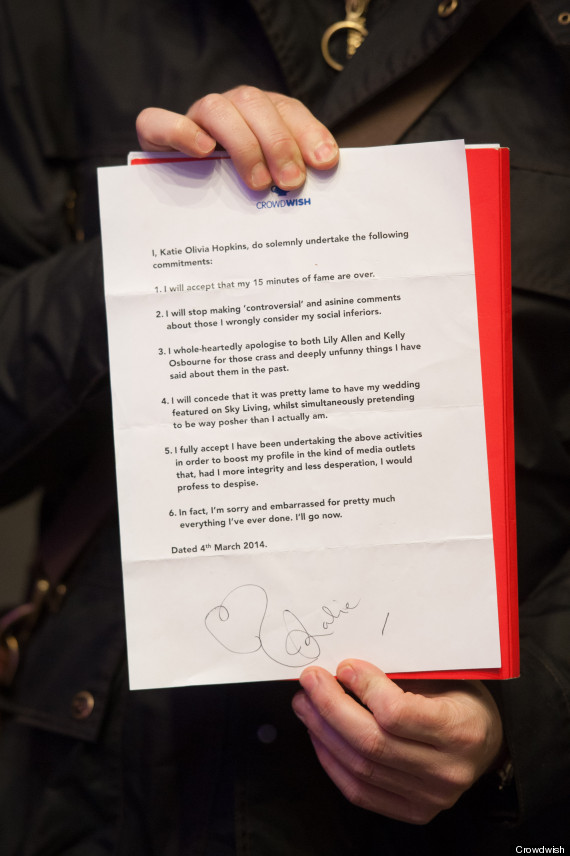 CROWDWISH
I, Katie Olivia Hopkins, do solemnly undertake the following
commitments:
1. I will accept that my 15 minutes of fame are over.
2. I will stop making ‘controversial’ and asinine comments
about those I wrongly consider my social inferiors.
3. I whole-heartedly apologise to both Lily Allen and Kelly
Osbourne for those crass and deeply unfunny things I have
said about them in the past.
4. I will concede that it was pretty lame to have my wedding
featured on Sky Living, whilst simultaneously pretending
to be way posher than I actually am.
5. I fully accept I have been undertaking the above activities
in order to boost my profile in the kind of media outlets
that, had I more integrity and less desperation, I would
profess to despise.
6. In fact, I’m sorry and embarrassed for pretty much
everything I’ve ever done. I’ll go now.
Dated 4th March 2014.
Katie
Crowdwish